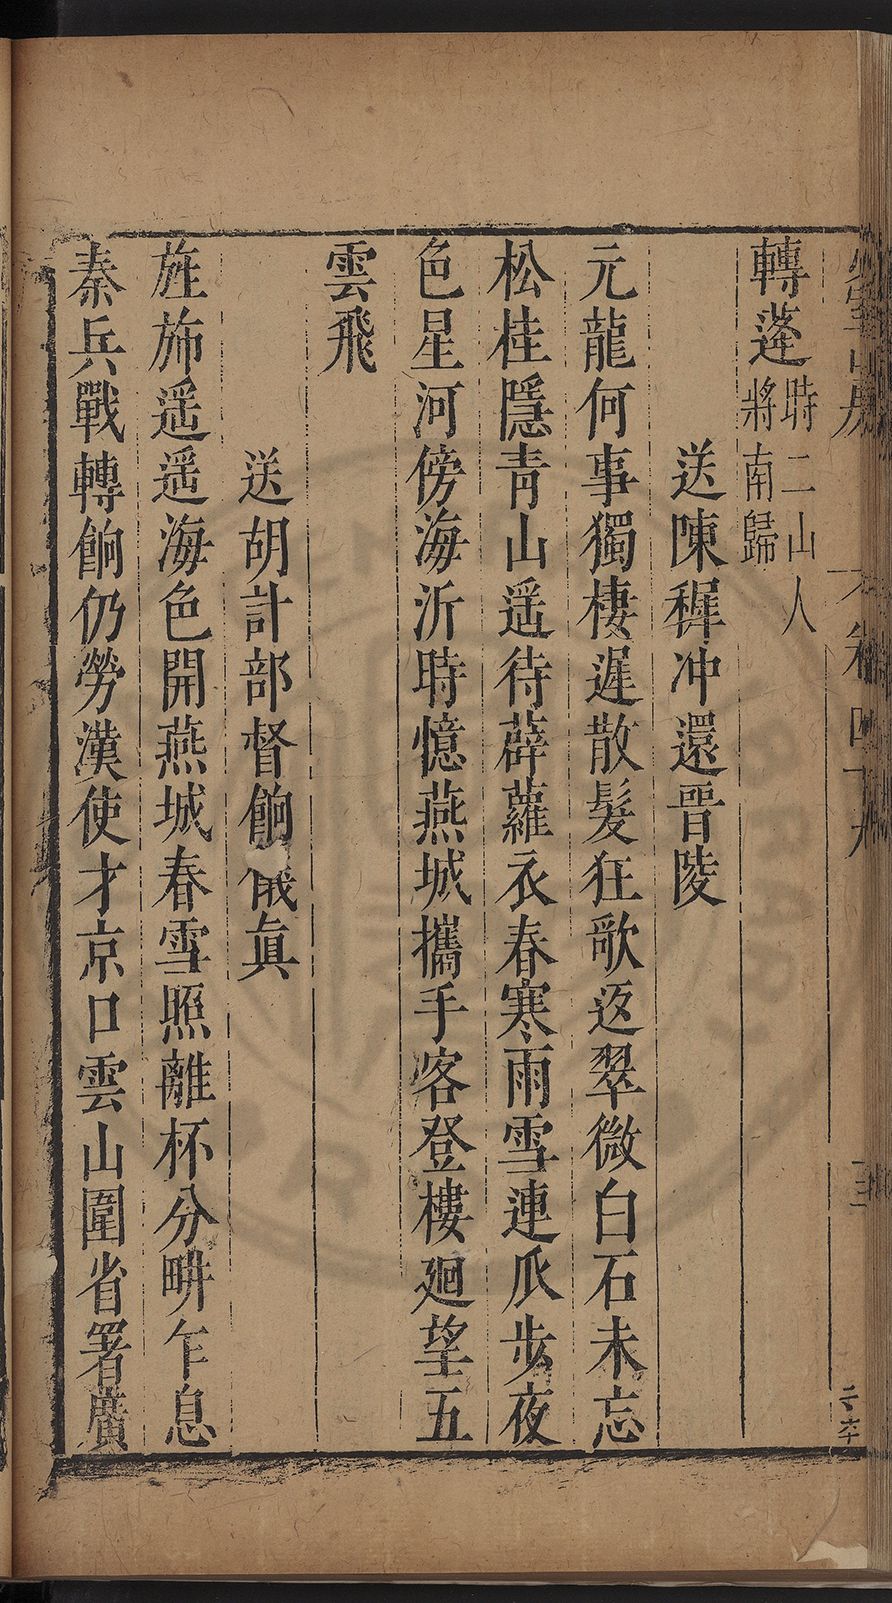 轉蓬時二山人將南歸
送陳穉冲還晉陵
元龍何事獨棲遲散髮狂歌返翠微白石未忘
松桂隱青山遥待薜蘿衣春寒雨雪連瓜步夜
色星河傍海沂時憶燕城攜手客登樓廻望五
雲飛
送胡計部督餉儀眞
旌斾遥遥海色開燕城春雪照離杯分畊乍息
秦兵戰轉餉仍勞漢使才京口雲山圍省署廣